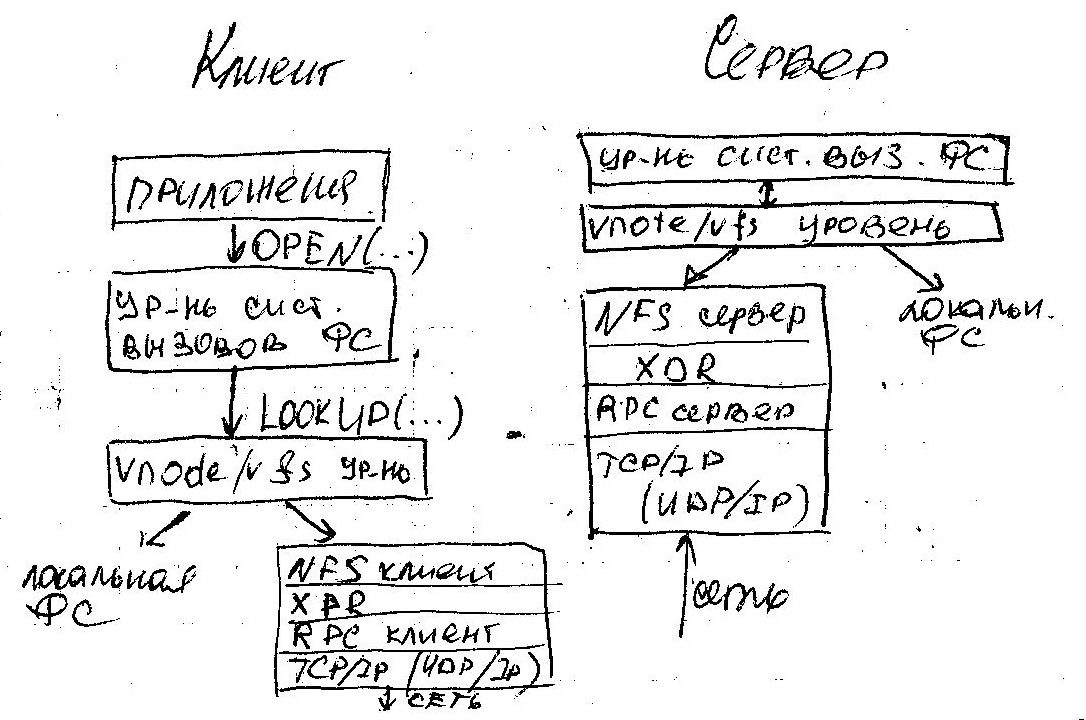 Клиент
приложения
OPEN(...)
ур-нь сист.
вызовов ФС
LOOKUP(...)
vnode/vfs ур-нь
локальная
ФС
NFS клиент
XDR
RPC клиент
TCP/IP (UDP/IP)
сеть
Сервер
ур-нь сист. выз. ФС
vnote/vfs уровень
NFS сервер
XDR
RPC сервер
TCP/IP
(UDP/IP)
локальн.
ФС
сеть